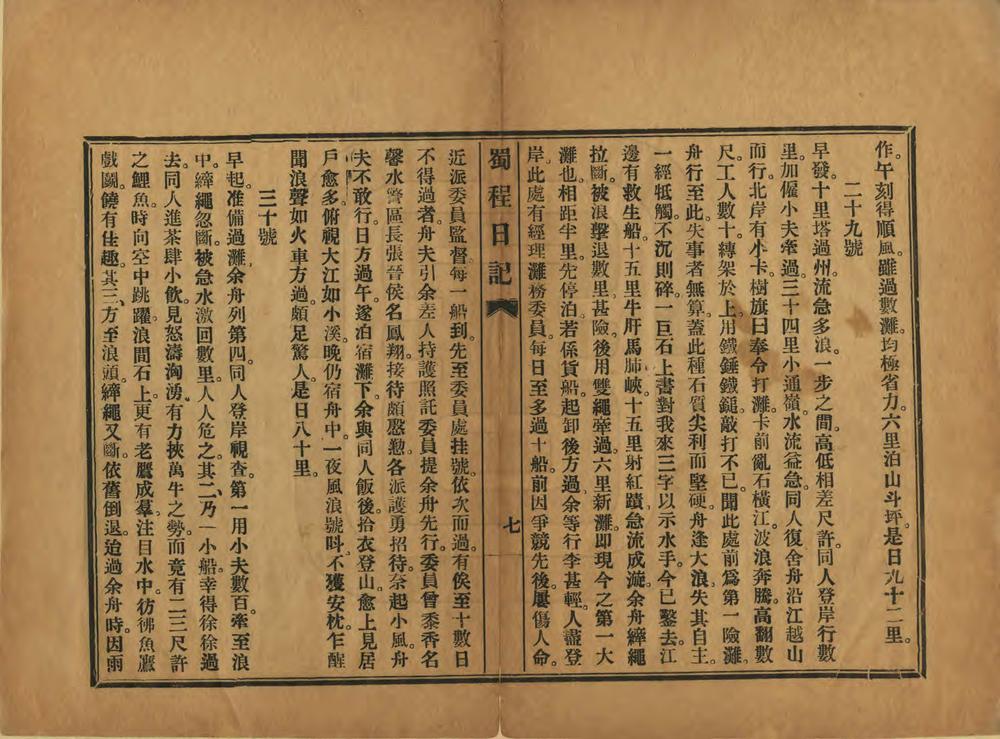 作。午刻得順風。雖過數灘。均極省力。六里泊山斗坪。是日九十二里。
二十九號
早發。十里塔過州。流急多浪。一步之間。高低相差尺許。同人登岸行數
里。加僱小夫牽過。三十四里小通嶺。水流益急。同人復舍舟沿江越山
而行。北岸有小卡。樹旗曰奉令打灘。卡前亂石橫江。波浪奔騰。高翻數
尺。工人數十。縛架於上。用鐵錘鐵鎚敲打不已。聞此處前爲第一險灘。
舟行至此。失事者無算。蓋此種石質尖利而堅硬。舟逢大浪。失其自主。
一經牴觸。不沉則碎。一巨石上書對我來三字以示水手。今已鑿去。江
邊有救生船。十五里牛肝馬肺峽。十五里射紅蹟。急流成漩。余舟縴繩
拉斷。被浪擊退數里。甚險。後用雙繩牽過。六里新灘。即現今之第一大
灘也。相距半里。先停泊。若係貨船。起卸後方過。余等行李甚輕。人盡登
岸。此處有經理灘務委員。每日至多過十船。前因爭競先後。屢傷人命。
蜀程日記
七
近派委員監督。每一船到。先至委員處挂號。依次而過。有俟至十數日
不得過者。舟夫引余差人持護照託委員提余舟先行。委員曾黍香名
馨。水警區長張晉侯名鳳翔。接待頗慇懃。各派護勇招待。奈起小風。舟
夫不敢行。日方過午。遂泊宿灘下。余與同人飯後拾衣登山。愈上見居
戶愈多。俯視大江如小溪。晚仍宿舟中。一夜風浪號呌。不獲安枕。乍醒
聞浪聲如火車方過。頗足驚人。是日八十里。
三十號
早起。准備過灘。余舟列第四。同人登岸視查。第一用小夫數百。牽至浪
中。縴繩忽斷。被急水激回數里。人人危之。其二、乃一小船。幸得徐徐過
去。同人進茶肆小飲。見怒濤洶湧。有力挾萬牛之勢。而竟有二三尺許
之鯉魚。時向空中跳躍。浪間石上。更有老鷹成羣。注目水中。彷彿魚鷹
戲鬭。饒有佳趣。其三、方至浪頭。縴繩又斷。依舊倒退。迨過余舟時。因雨